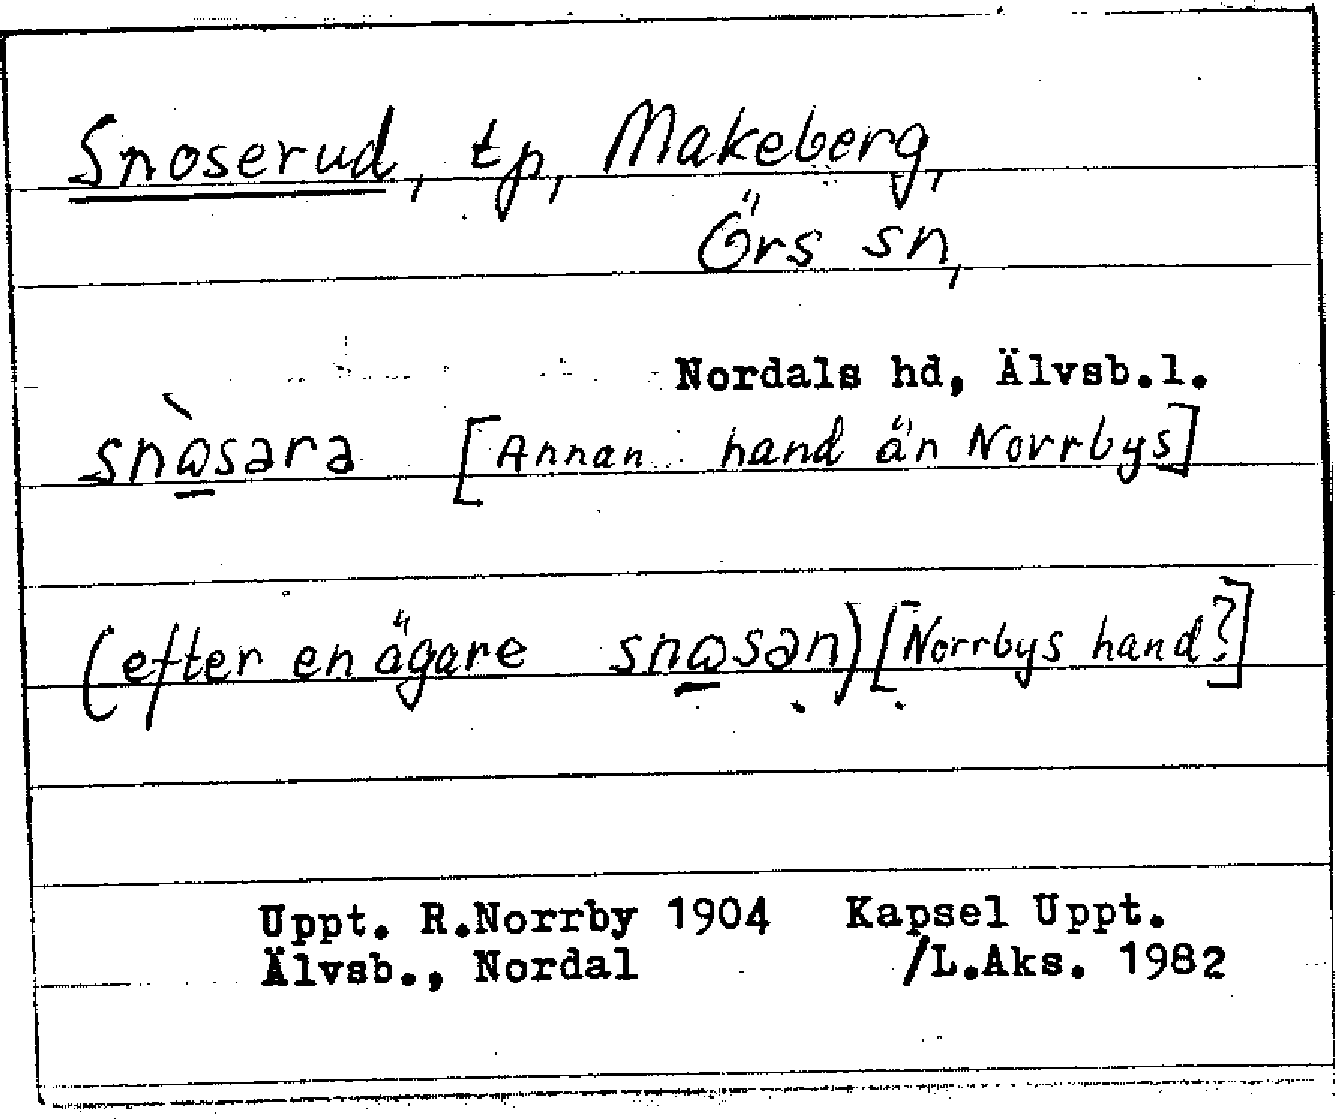 Snoserud, tp, Makeberg,
Örs sn,
Nordals hd, Älvsb.l.
snɷ̀sara [Annan hand än Norrbys]
(efter en ägare snɷsən) [Norrbys hand?]
Uppt. R.Norrby 1904 Kapsel Uppt.
Älvsb., Nordal /L.Aks. 1982